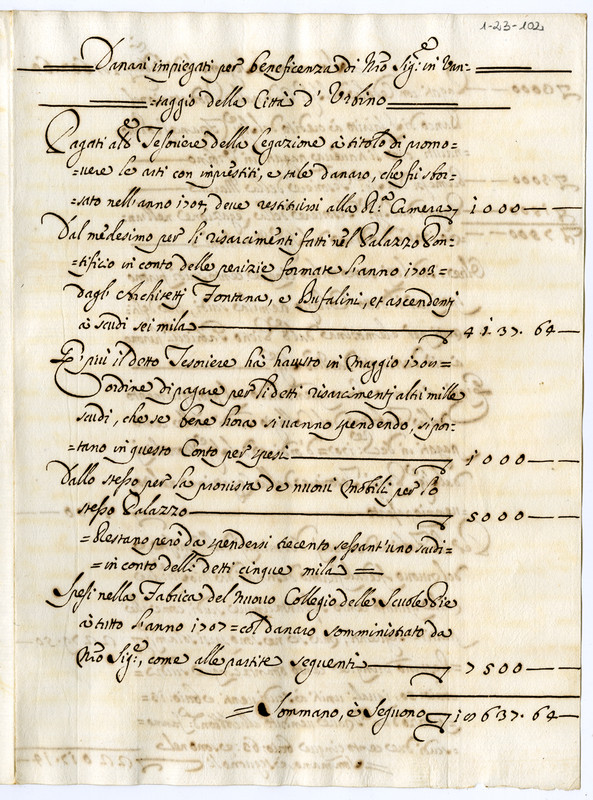 1-23-102
Danari impiegati per beneficenza di Nro Sig.e in Van-
-taggio della Città d'Urbino
Pagati al Tesoriere della Legazione à titolo di promo=
=vere le arti con imprestiti, e tale danaro, che fù sbor-
-sato nell'anno 1704, deve restituirsi alla R.a Camera 1000
Dal medesimo per li risarcimenti fatti nel Palazzo Pon-
-tificio in conto delle perizie formate l'anno 1703=
dagl'Architetti Fontana, e Bufalini, et ascendenti
à scudi sei mila 4137. 64
E più il detto Tesoriere hà hauuto in Maggio
ordine di pagare per li detti risarcimenti altri mille
scudi, che se bene hora si vanno spendendo, si por-
-tano in questo Conto per spesi 1000
Dallo stesso per la provista de nuovi Mobili per lo
stesso Palazzo 5000
=Restano però da spendersi trecento sessant'uno scudi=
=in conto delli detti cinque mila=
Spesi nella Fabrica del nuovo Collegio delle Scuole Pie
à tutto l'anno 1707=col danaro somministrato da
Nro Sig.e, come alle partite seguenti 7500
=Sommano, è Seguono 18637. 64